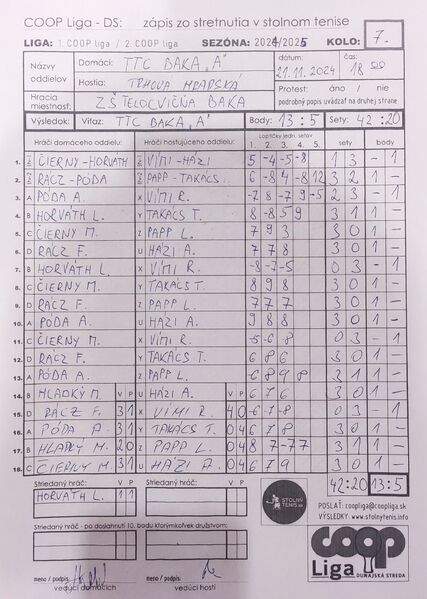 COOP Liga - DS: zápis zo stretnutia v stolnom tenise
LIGA: 1. COOP liga / 2. COOP liga SEZÓNA: 2024/2025 KOLO: 7.
Názvy oddielov Domáci: TTC BAKA „A" dátum: 21.11.2024 čas: 18 00
Hostia: TRHOVÁ HRADSKÁ Protest: áno / nie
Hracia miestnosť: ZŠ TELOCVIČŇA BAKA podrobný popis uvádzať na druhej strane
Výsledok: Víťaz: TTC BAKA „A" Body: 13:5 Sety: 42:20
Hráči domáceho oddielu: Hráči hosťujúceho oddielu: Loptičky jedn. setov sety body
1. 2. 3. 4. 5.
1. ČIERNY-HORVÁTH VÍMI-HÁZI 5 -4 -5 -8 1 3 - 1
2. RÁCZ-PÓDA PAPP-TAKÁCS 6 -8 4 -8 -12 2 3 - 1
3. A PÓDA A. X VÍMI R. -7 8 -7 9 -5 2 3 - 1
4. B HORVÁTH L. Y TAKÁCS T. 8 -8 5 9 3 1 1 -
5. C ČIERNY M. Z PAPP L. 7 9 3 3 0 1 -
6. D RÁCZ F. U HÁZI A. 7 7 8 3 0 1 -
7. B HORVÁTH L. X VÍMI R. -8 -7 -5 0 3 - 1
8. C ČIERNY M. Y TAKÁCS T. 8 9 8 3 0 1 -
9. D RÁCZ F. Z PAPP L. 7 7 7 3 0 1 -
10. A PÓDA A. U HÁZI A. 9 8 8 3 0 1 -
11. C ČIERNY M. X VÍMI R. -5 -6 -8 0 3 - 1
12. D RÁCZ F. Y TAKÁCS T. 6 8 6 3 0 1 -
13. A PÓDA A. Z PAPP L. 3 1 1 -
14. B HLADKÝ M. V P U HÁZI A. V P 6 7 6 3 0 1 -
15. D RÁCZ F. 3 1 X VÍMI R. 4 0 -6 -7 -8 0 3 - 1
16. A PÓDA A. 3 1 Y TAKÁCS T. 0 4 6 7 8 3 0 1 -
17. B HLADKÝ M. 2 0 Z PAPP L. 0 4 8 7 -7 7 3 1 1 -
18. C ČIERNY M. 3 1 U HÁZI A. 0 4 6 7 9 3 0 1 -
42:20 13:5
Striedaný hráč: V P Striedaný hráč: V P
HORVÁTH L. 1 1
STOLNÝ TENIS
POSLAŤ: coopliga@coopliga.sk
VÝSLEDKY: www.stolnytenis.info
Striedaný hráč - po dosiahnutí 10. bodu ktorýmkoľvek družstvom:
coop
Liga
DUNAJSKÁ STREDA
meno / podpis: meno / podpis:
vedúci domácich vedúci hostí